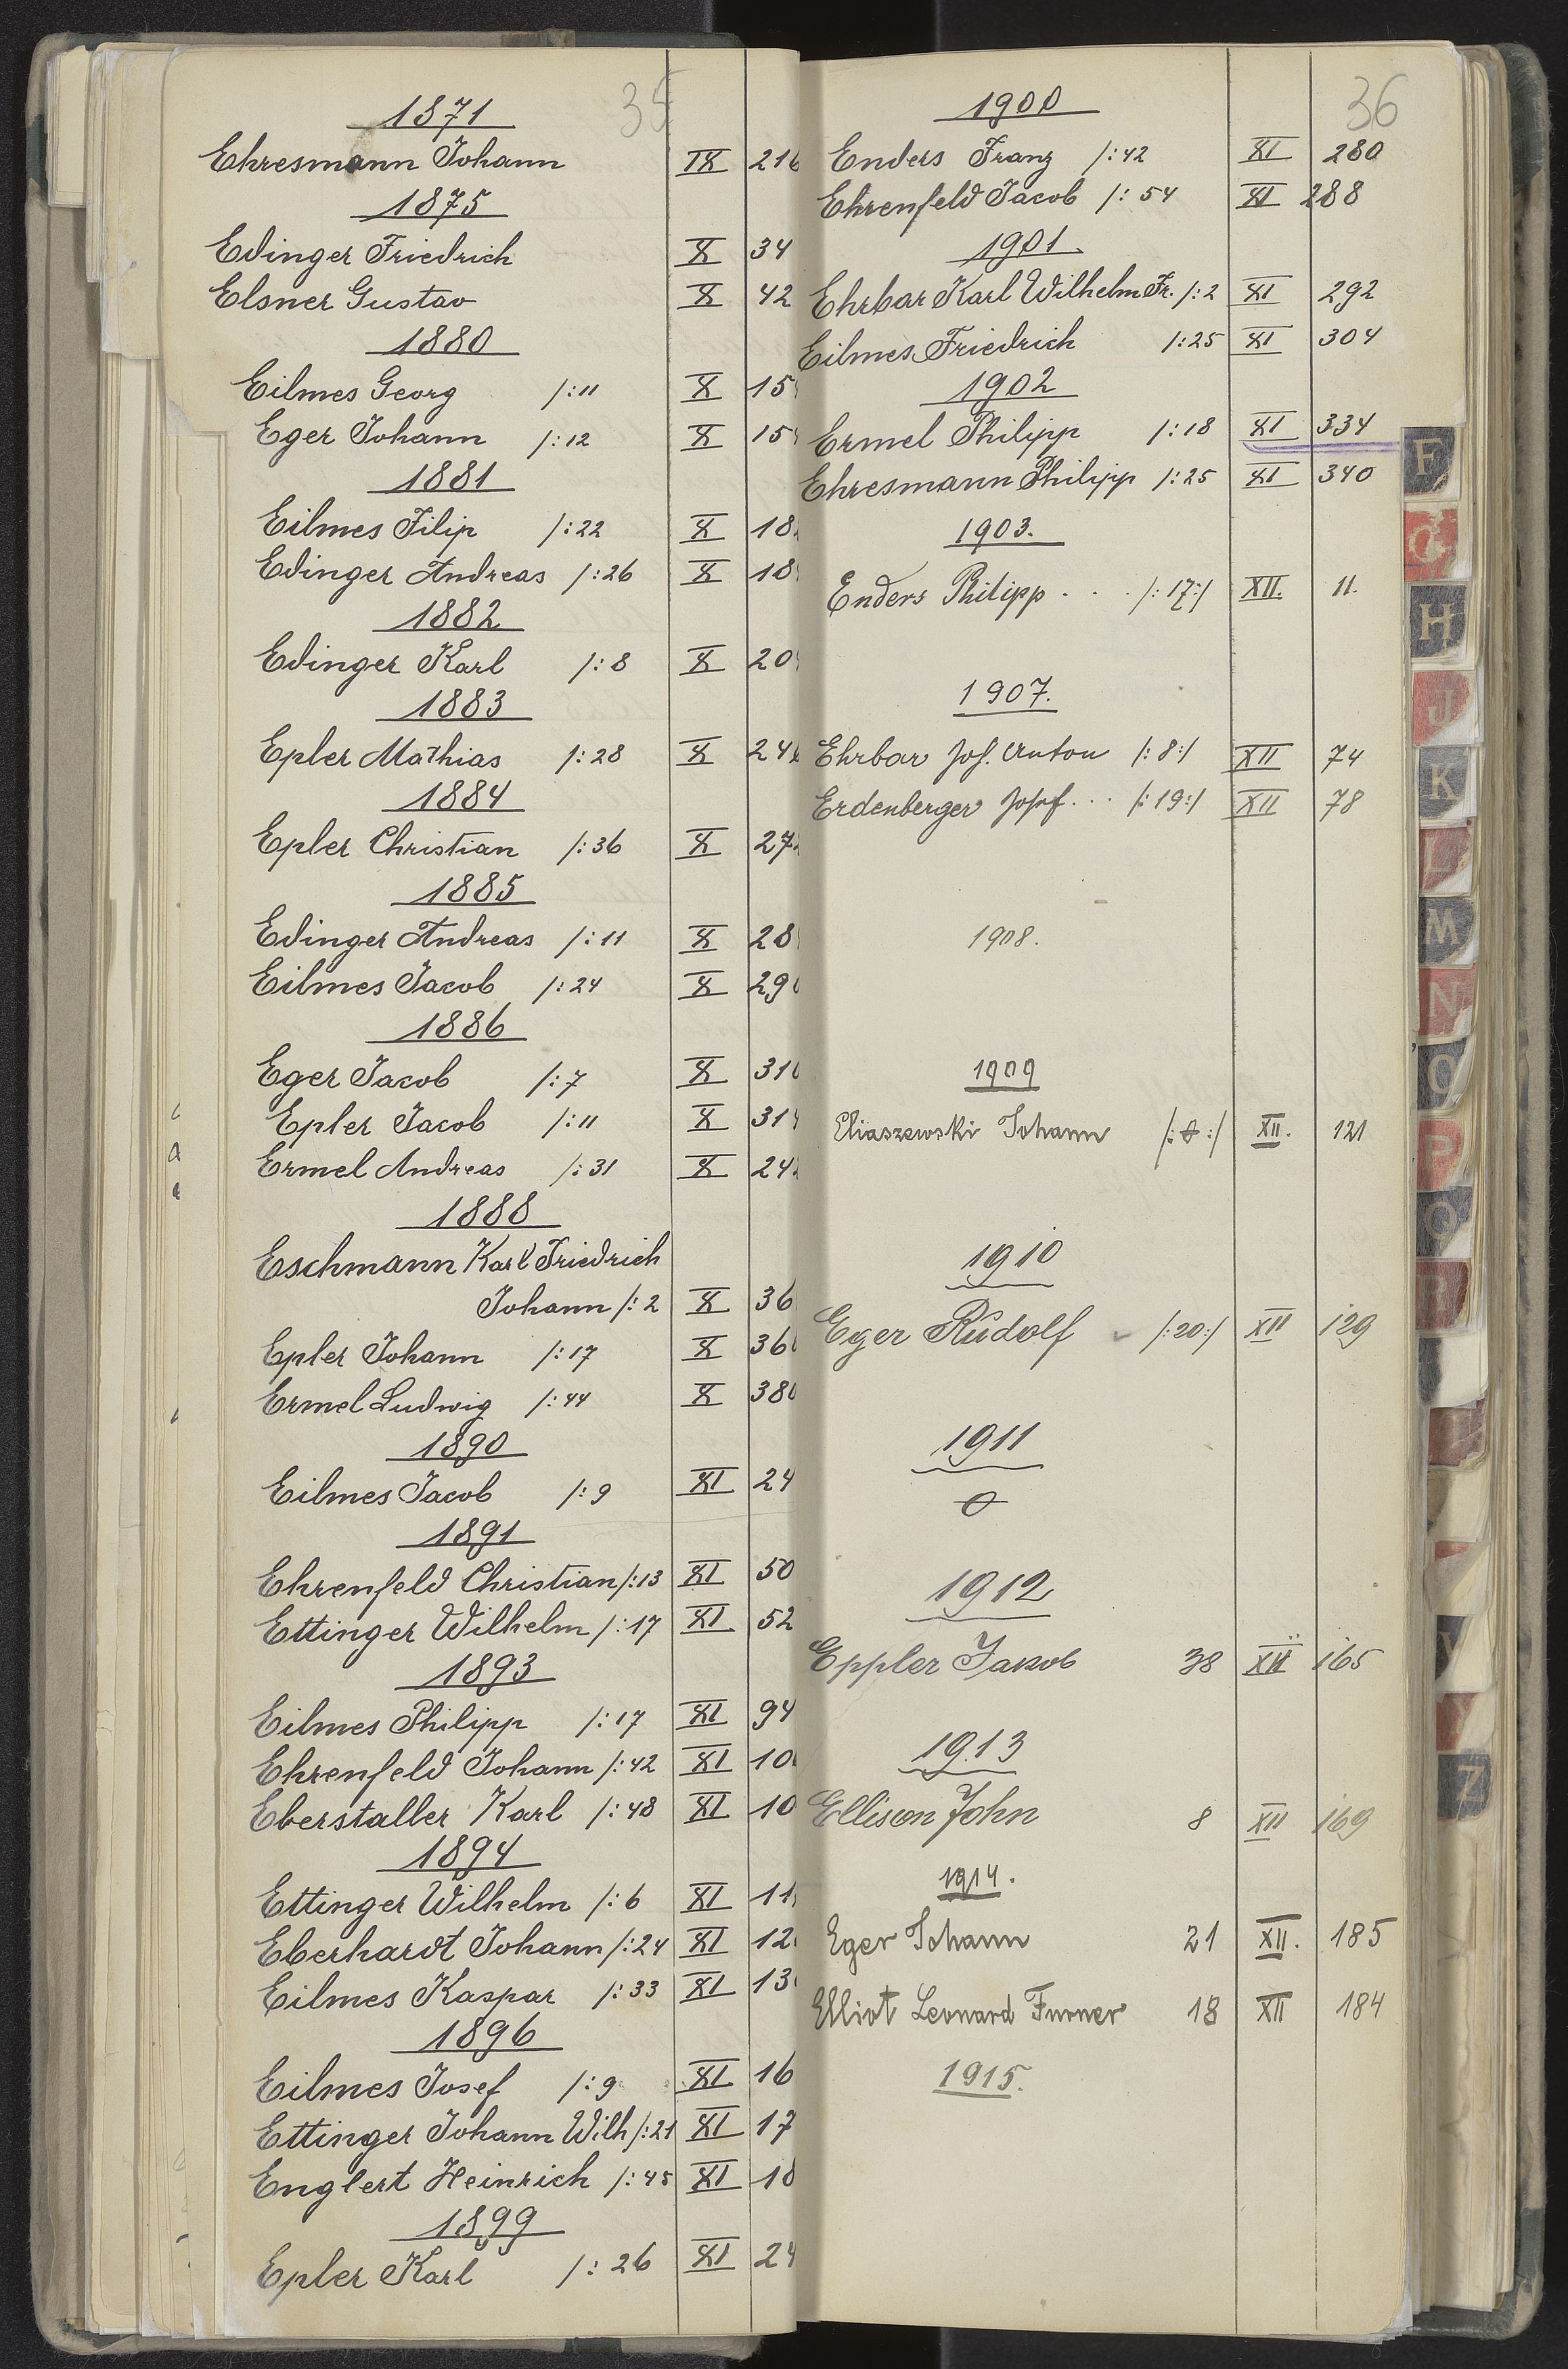 35
1871
Ehresmann Johann IX 216
1875
Edinger Friedrich X 34
Elsner Gustav X 42
1880
Eilmes Georg /:11 X 15
Eger Johann /:12 X 15
1881
Eilmes Filip /:22 X 18
Edinger Andreas /:26 X 18
1882
Edinger Karl /:8 X 20
1883
Epler Mathias /:28 X 24
1884
Epler Christian /:36 X 27
1885
Edinger Andreas /:11 X 28
Eilmes Jacob /:24 X 29
1886
Eger Jacob /:7 X 31
Epler Jacob /:11 X 31
Ermel Andreas /:31 X 24
1888
Eschmann Karl Friedrich
Johann /:2 X 36
Epler Johann /:17 X 36
Ermel Ludwig /:44 X 38
1890
Eilmes Jacob /:9 XI 24
1891
Ehrenfeld Christian /:13 XI 50
Ettinger Wilhelm /:17 XI 52
1893
Eilmes Philipp /:17 XI 94
Ehrenfeld Johann /:42 XI 10
Eberstaller Karl /:48 XI 10
1894
Ettinger Wilhelm /:6 XI 11
Eberhardt Johann /:24 XI 12
Eilmes Kaspar /:33 XI 13
1896
Eilmes Josef /:9 XI 16
Ettinger Johann Wilh /:21 XI 17
Englert Heinrich /:45 XI 18
1899
Epler Karl /:26 XI 24
36
1900
Enders Franz /:42 XI 280
Ehrenfeld Jacob /:54 XI 288
1901
Ehrbar Karl Wilhelm Fr. /:2 XI 292
Eilmes Friedrich /:25 XI 304
1902
Ermel Philipp /:18 XI 334
Ehresmann Philipp /:25 XI 340
1903.
Enders Philipp . . . /:17:/ XII. 11.
1907.
Ehrbar Jos. Anton /:8:/ XII 74
Erdenberger Josef . . . /:19:/ XII 78
1908.
1909
Eliaszewski Johann XII. 121
1910
Eger Rudolf /:20:/ XII 129
1911
0
1912
Eppler Jakob 38 XII 165
1913
Ellison John 8 XII 169
1914.
Eger Johann 21 XII. 185
Elliot Leonard Furner 18 XII 184
1915.
F
G
H
J
K
L
M
N
O
P
Q
R
V
Y
Z